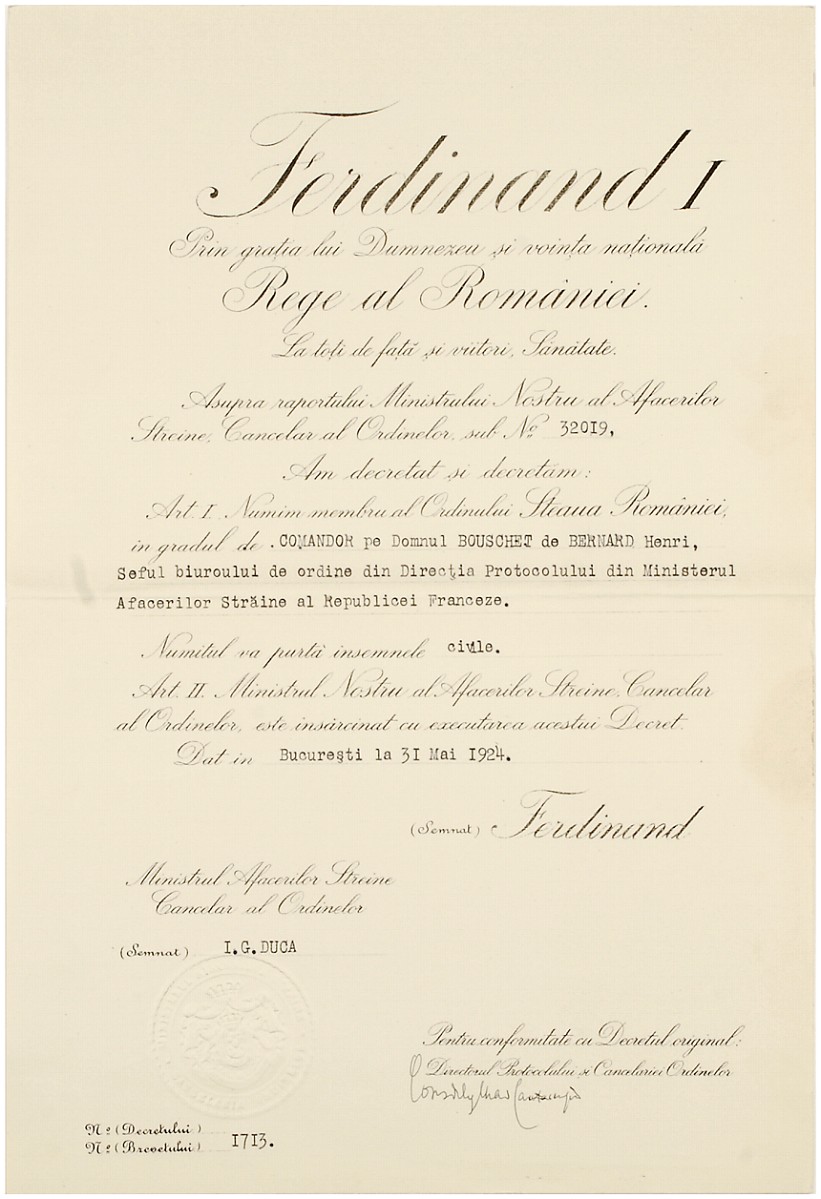 Ferdinand I
Prin grația lui Dumnezeu și voința națională
Rege al României.
La toți de față și viitori, Sănătate.
Asupra raportului Ministrului Nostru al Afacerilor
Streine, Cancelar al Ordinelor, sub Nº 32019,
Am decretat și decretăm:
Art. I. Numim membru al Ordinului Steaua României,
in gradul de .COMANDOR pe Domnul BOUSCHET de BERNARD Henri,
Seful biuroului de ordine din Direcția Protocolului din Ministerul
Afacerilor Străine al Republicei Franceze.
Numitul va purtà insemnele civile.
Art. II. Ministrul Nostru al Afacerilor Streine, Cancelar
al Ordinelor, este insărcinat cu executarea acestui Decret.
Dat in București la 31 Mai 1924.
(Semnat) Ferdinand
Ministrul Afacerilor Streine
Cancelar al Ordinelor
(Semnat) I.G.DUCA
Pentru conformitate cu Decretul original:
Directorul Protocolului și Cancelariei Ordinelor
Nº (Decretului)
Nº (Brevetului) 1713.